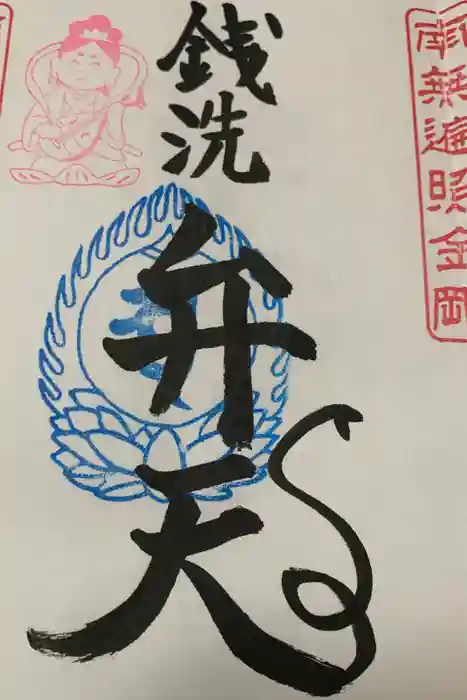 銭洗
弁天
南無遍照金岡